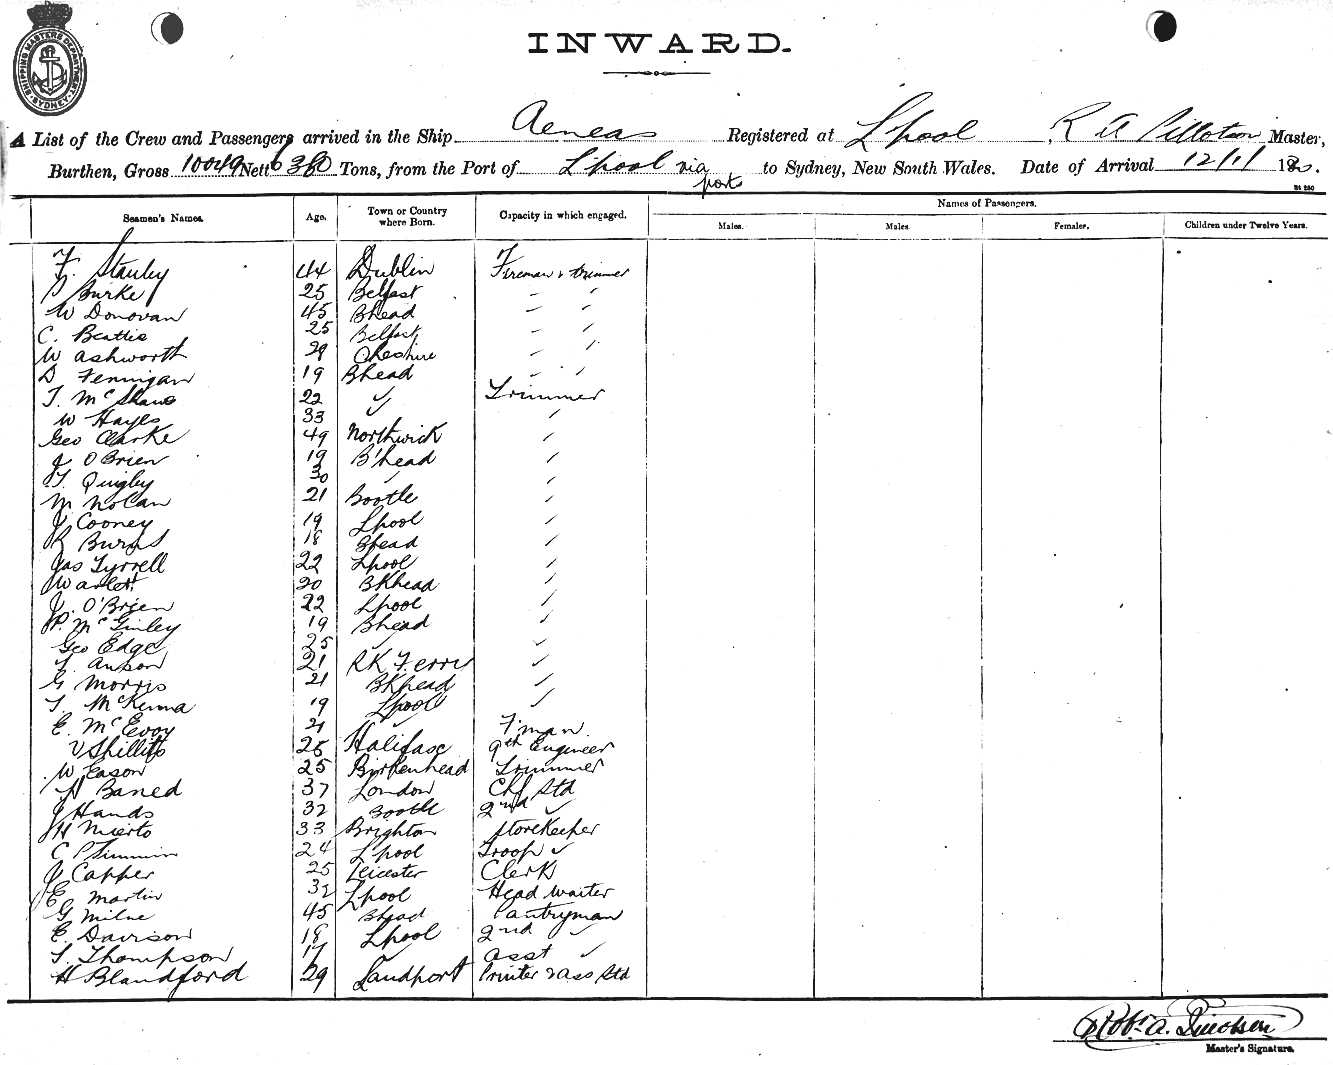 SHIPPING MASTERS DEPARTMENT SYDNEY
INWARD.
A List of the Crew and Passengers arrived in the Ship Aeneas Registered at L'pool, R A Master,
Burthen, Gross 10049 Nett 6380 Tons, from the Port of L'pool via ports to Sydney, New South Wales. Date of Arrival 12/1/
Names of Passengers.
Seamen's Names. Age. Town or Country where Born. Capacity in which engaged. Males. Males. Females. Children under Twelve Years.
F. Stanley 44 Dublin Fireman & trimmer
Burke 25 Belfast " "
W Donovan 45 Bhead " "
C. Beattie 25 Belfast " "
W Ashworth 29 Cheshire " "
D Fennigan 19 Bhead " "
T. McShane 22 " Trimmer
W Hayes 33 " "
Geo Clarke 49 Northwick "
J O'Brien 19 B'head "
T. Quigley 30 " "
M Nolan 21 Bootle "
J Cooney 19 Lpool "
R Burns 18 Bhead "
Jas Tyrrell 22 Lpool "
W 20 BKhead "
J. O'Brien 22 Lpool "
P. McGinley 19 Bhead "
Geo Edge 25 " "
T. Anson 21 RK Ferry "
G Morris 21 BKhead "
T. McKenna 19 Lpool "
E. McEvoy 21 " F'man
V Shillito 25 Halifax 9th Engineer
W Eason 25 Birkenhead Trimmer
H Baned 37 London Chf Std
J Hands 32 Bootle 2nd "
H 33 Brighton Storekeeper
C P 24 L'pool Troop "
J Capper 25 Leicester Clerk
E Martin 32 Lpool Head Waiter
G Milne 45 Bhead Pantryman
E. Davison 18 Lpool 2nd "
T. Thompson 17 " Asst "
H Blandford 29 Landport Printer & Ass Std
Robt. A.
Master's Signature.